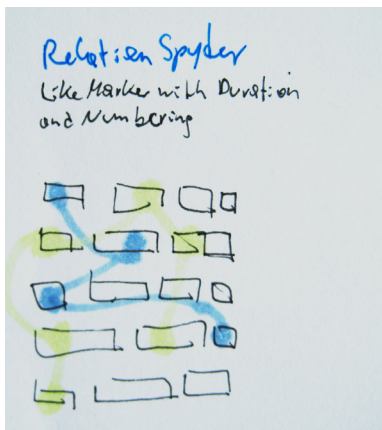 Relation Spyder
Like Marker with Duration
and Numbering